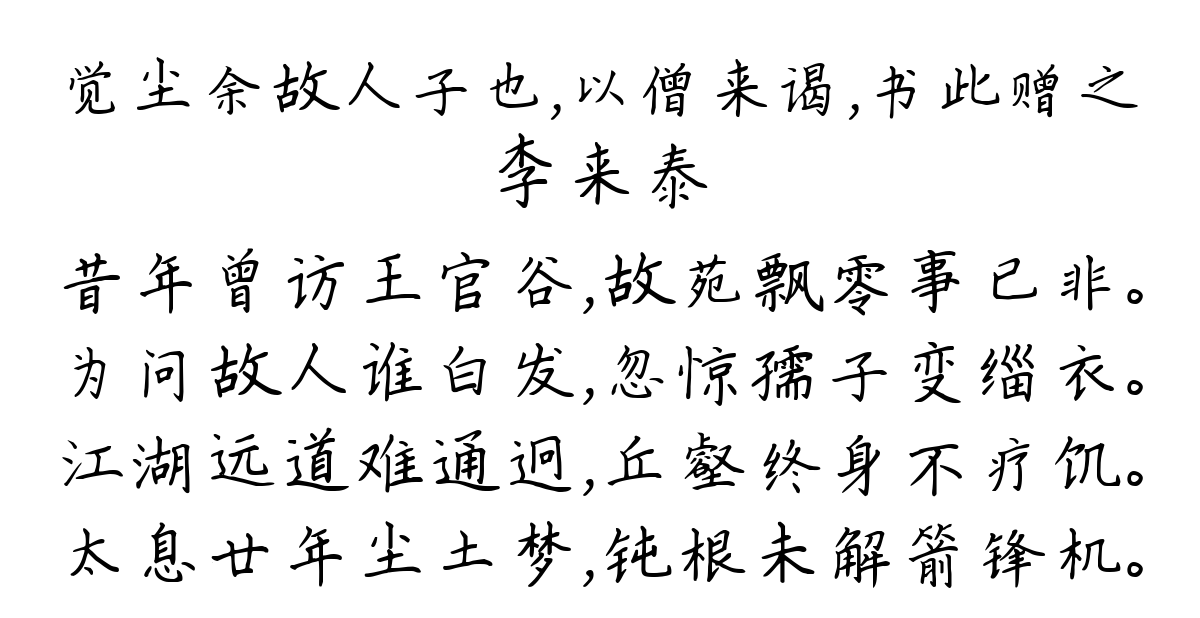 觉尘余故人子也,以僧来谒,书此赠之
李来泰
昔年曾访王官谷,故苑飘零事已非。
为问故人谁白发,忽惊孺子变缁衣。
江湖远道难通迥,丘壑终身不疗饥。
太息廿年尘土梦,钝根未解箭锋机。